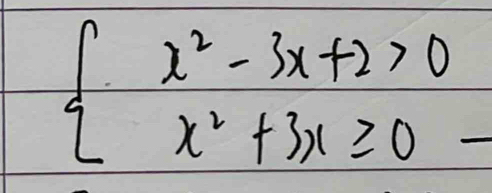 x² - 3x + 2 > 0
x² + 3x ≥ 0 —